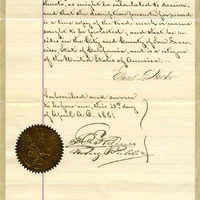 thereto, as might be calculated to deceive,
and that the description presented for record
is a true copy of the trade mark or name
sought to be protected, and that he re-
sides in the City and County of San Fran-
cisco, State of California, and is a citizen
of the United States of America.
Subscribed and sworn
to before me, this 23d day
of April A.D. 1881
Notary Public